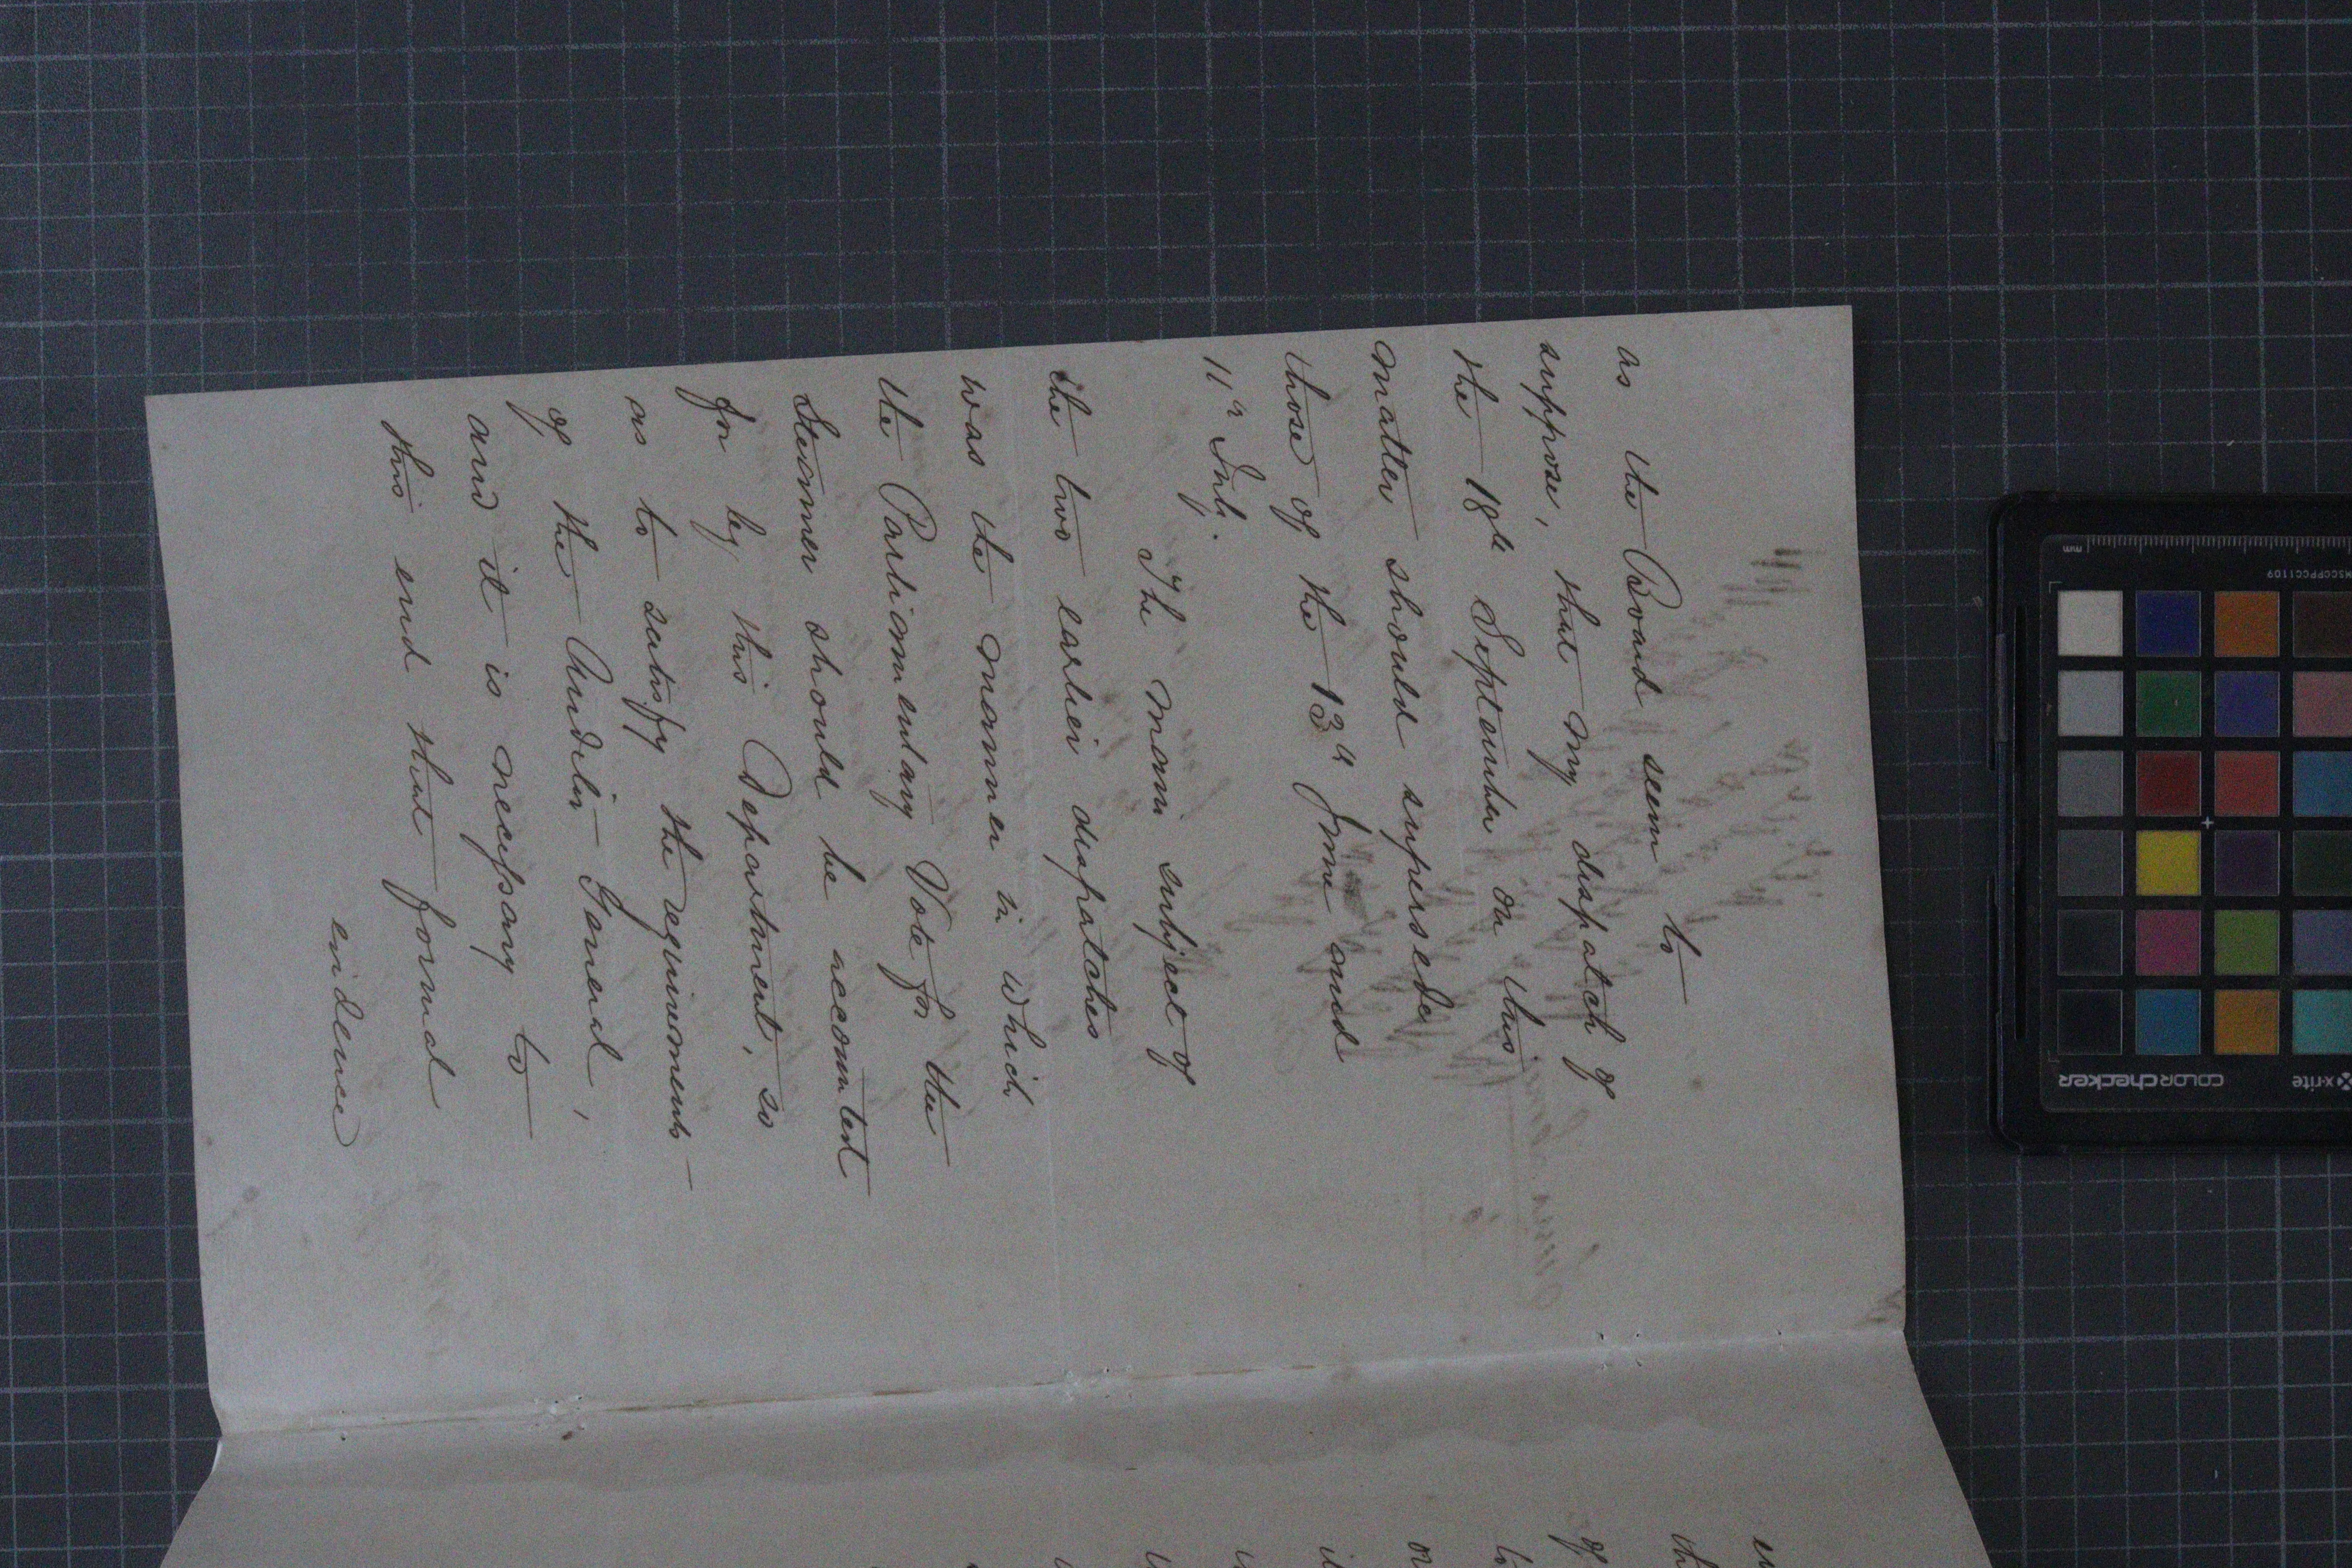 as the Board seem to
suppose, that my dispatch of
the 18th September on this
matter should supersede
those of the 13th June and
11th July.
The main subject of
the two earlier dispatches
was the manner in which
the Parliamentary Vote for the
Steamer should be accounted
for by this Department, so
as to satisfy the requirements
of the Auditor General,
and it is necessary to
this end that formal
evidence
mm
MSCCPPCC1109
x-rite
COLORchecker